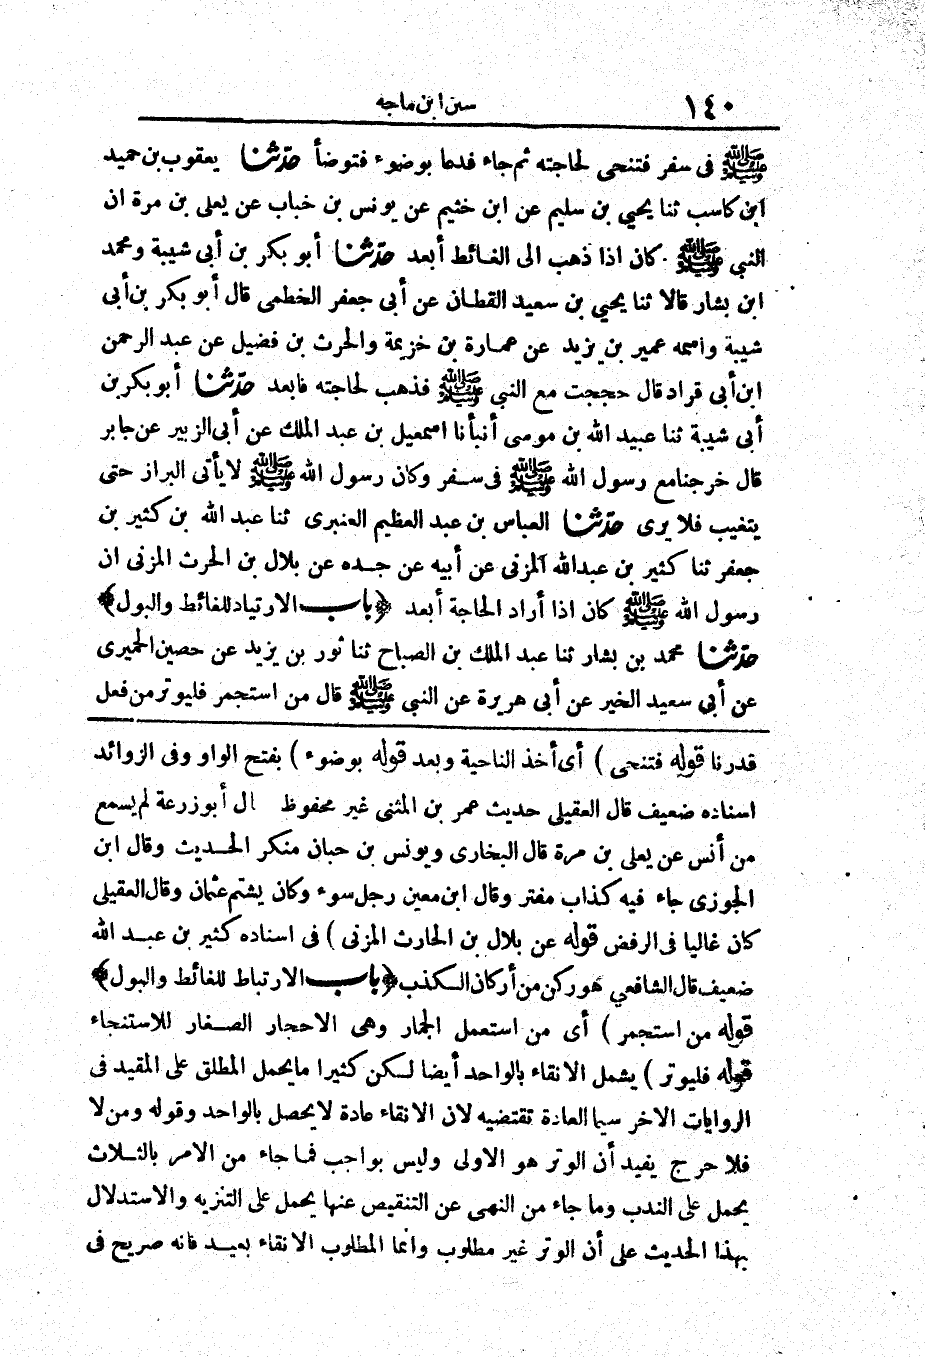 ١٤٠ سنن ابن ماجه
ﷺ فى سفر فتنحى لحاجته ثم جاء فدعا بوضوء فتوضأ حدّثنا يعقوب بن حميد
ابن كاسب ثنا يحيي بن سليم عن ابن خثيم عن يونس بن خباب عن يعلى بن مرة ان
النبي ﷺ كان اذا ذهب الى الغائط أبعد حدّثنا أبو بكر بن أبى شيبة ومحمد
ابن بشار قالا ثنا يحيي بن سعيد القطان عن أبى جعفر الخطمى قال أبو بكر بن أبى
شيبة واسمه عمير بن يزيد عن عمارة بن خزيمة والحرث بن فضيل عن عبد الرحمن
ابن أبى قراد قال حججت مع النبي ﷺ فذهب لحاجته فابعد حدّثنا أبو بكر بن
أبى شيبة ثنا عبيد الله بن موسى أنبأنا اسمعيل بن عبد الملك عن أبى الزبير عن جابر
قال خرجنا مع رسول الله ﷺ فى سفر وكان رسول الله ﷺ لا يأتى البراز حتى
يتغيب فلا يرى حدّثنا العباس بن عبد العظيم العنبرى ثنا عبد الله بن كثير بن
جعفر ثنا كثير بن عبدالله المزنى عن أبيه عن جده عن بلال بن الحرث المزنى ان
رسول الله ﷺ كان اذا أراد الحاجة أبعد ﴿باب الارتياد للغائط والبول﴾
حدّثنا محمد بن بشار ثنا عبد الملك بن الصباح ثنا ثور بن يزيد عن حصين الحميرى
عن أبي سعيد الخير عن أبى هريرة عن النبي ﷺ قال من استجمر فليوتر من فعل
قدرنا قوله فتنحى) أى أخذ الناحية وبعد قوله بوضوء) بفتح الواو وفى الزوائد
اسناده ضعيف قال العقيلى حديث عمر بن المثنى غير محفوظ ال أبو زرعة لم يسمع
من أنس عن يعلى بن مرة قال البخارى ويونس بن حبان منكر الحديث وقال ابن
الجوزى جاء فيه كذاب مفتر وقال ابن معين رجل سوء وكان يشتم عثمان وقال العقيلى
كان غاليا فى الرفض قوله عن بلال بن الحارث المزنى) فى اسناده كثير بن عبد الله
ضعيف قال الشافعي هو ركن من أركان الكذب ﴿باب الارتباط للغائط والبول﴾
قوله من استجمر) أى من استعمل الجمار وهى الاحجار الصغار للاستنجاء
قوله فليوتر) يشمل الانقاء بالواحد أيضا لكن كثيرا ما يحمل المطلق على المقيد فى
الروايات الاخر سيما العادة تقتضيه لان الانقاء عادة لا يحصل بالواحد وقوله ومن لا
فلا حرج يفيد أن الوتر هو الاولى وليس بواجب فما جاء من الامر بالثلاث
يحمل على الندب وما جاء من النهى عن التنقيص عنها يحمل على التنزيه والاستدلال
بهذا الحديث على أن الوتر غير مطلوب وانما المطلوب الانقاء بعيد فانه صريح فى